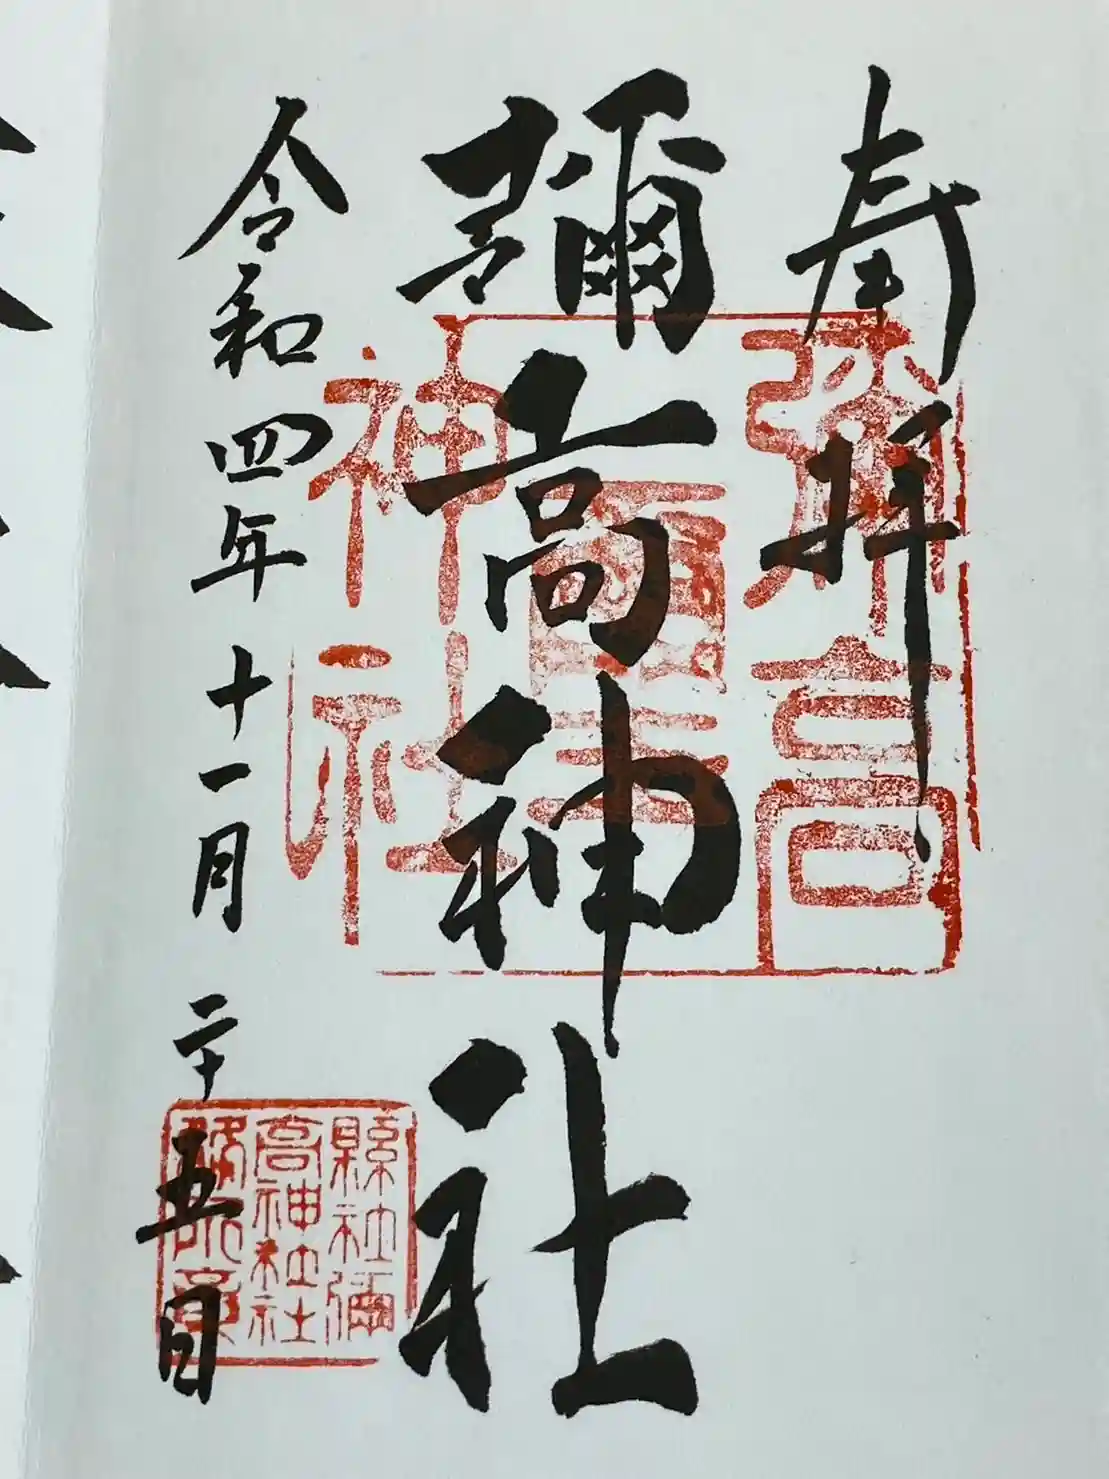 奉拝
彌高神社
令和四年十一月二十五日
彌高
神社
縣社彌
高神社社
務所章